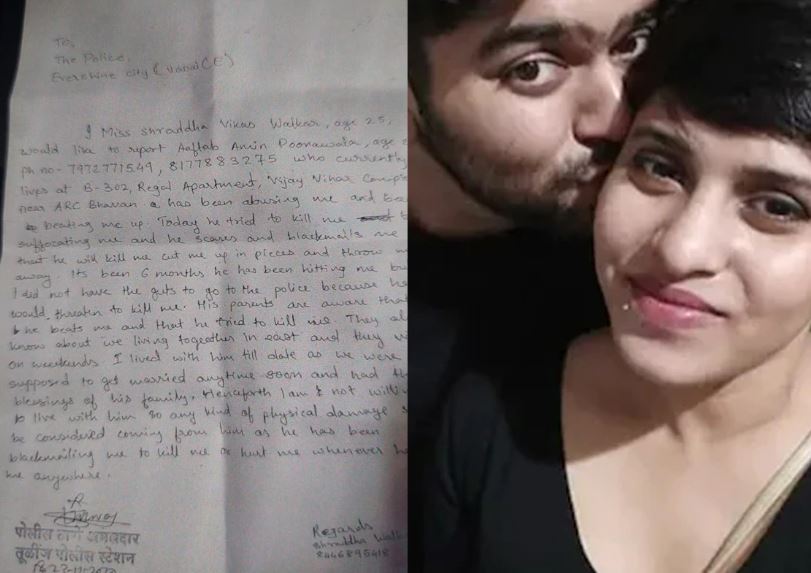 To,
The Police,
Evershine city (Vasai(E)
I Miss Shraddha Vikas Walkar, age 25,
would like to report Aaftab Amin Poonawala, age
ph no- 7972771549, 8177883275 who currently
lives at B-302, Regal Apartment, Vijay Vihar Complex
near ARC Bhavan has been abusing me and
beating me up. Today he tried to kill me
suffocating me and he scares and blackmails me
that he will kill me cut me up in pieces and throw
away. Its been 6 months he has been hitting me
I did not have the guts to go to the police because
would threaten to kill me. His parents are aware that
he beats me and that he tried to kill me. They
know about we living together in and they
on weekends I lived with him till date as we were
supposed to get married anytime soon and had
blessings of his family. Henceforth I am not
to live with him so any kind of physical damage
be considered coming from him as he has been
blackmailing me to kill me or hurt me whenever
me anywhere.
पोलीस ठाणे अंमलदार
तुळींज पोलीस स्टेशन
Regards
Shraddha
8446895418